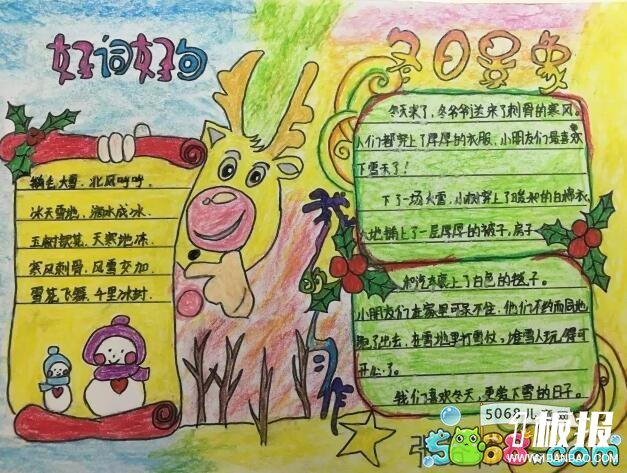 好词好句
鹅毛大雪、北风呼呼、
冰天雪地、滴水成冰、
玉树银花、天寒地冻、
寒风刺骨、风雪交加、
雪花飞舞、千里冰封、
冬日景象
冬天来了，冬爷爷送来了刺骨的寒风。
人们都穿上了厚厚的衣服，小朋友们最喜欢
下雪天了！
下了一场大雪，小树穿上了暖和的白棉衣，
大地铺上了一层厚厚的被子，房子
和汽车裹上了白色的毯子。
小朋友们在家里可呆不住，他们不约而同地
跑了出去，在雪地里打雪仗，堆雪人玩得可
开心了。
我们喜欢冬天，更爱下雪的日子。
习作
5068儿
板报
WWW.1BANBAO.COM